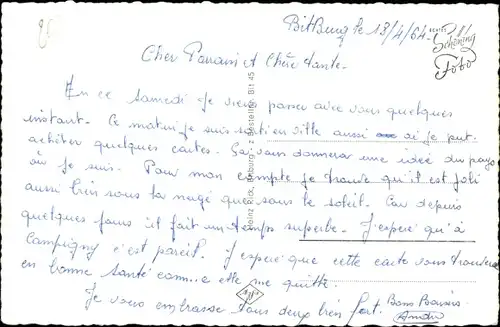 Bitburg le 13/4/64.
ECHTES
Schöning
Foto
Cher Parrain et Chère tante.
En ce samedi je viens passer avec vous quelques
instant. Ce matin je suis sorti en ville aussi ai je put
acheter quelques cartes. Sa vous donnerar une idée du pays
où je suis. Pour mon compte je trouve qu'il est joli
aussi bien sous la neige que sous le soleil. Car depuis
quelques jours il fait un temps superbe. J'espère qu'à
Campigny c'est pareil. J'espère que cette carte vous trouvera
en bonne santé comme elle me quitte.
Je vous embrasse tous deux bien fort. Bons Baisers
André
Heinz Rick, Bitburg - z Bestellen. Bit 45